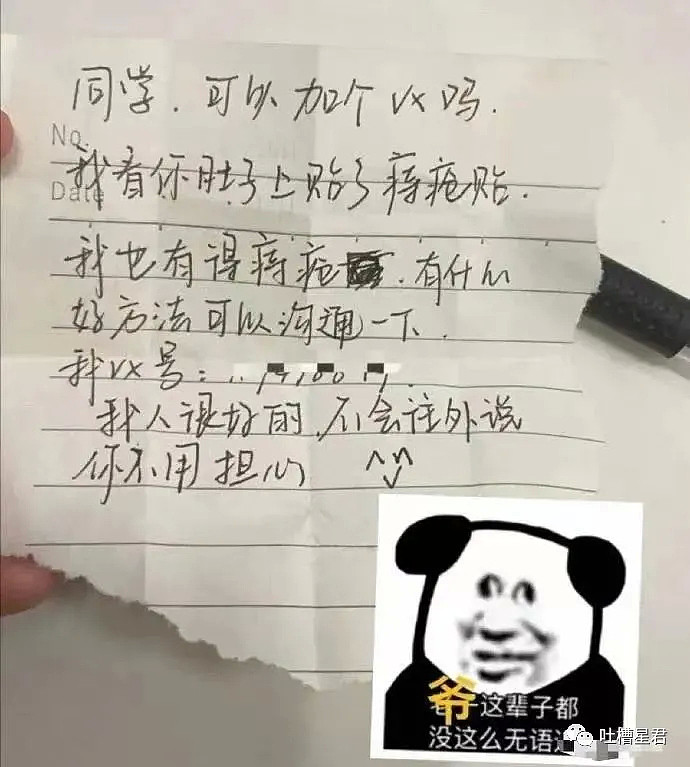 同学，可以加个VX吗．
No.
Date
我看你肚子上贴了痔疮贴．
我也有得痔疮，有什么
好方法可以沟通一下．
我VX号：
我人很好的，不会往外说
你不用担心 ^ᵕ^
爷这辈子都
没这么无语
吐槽星君